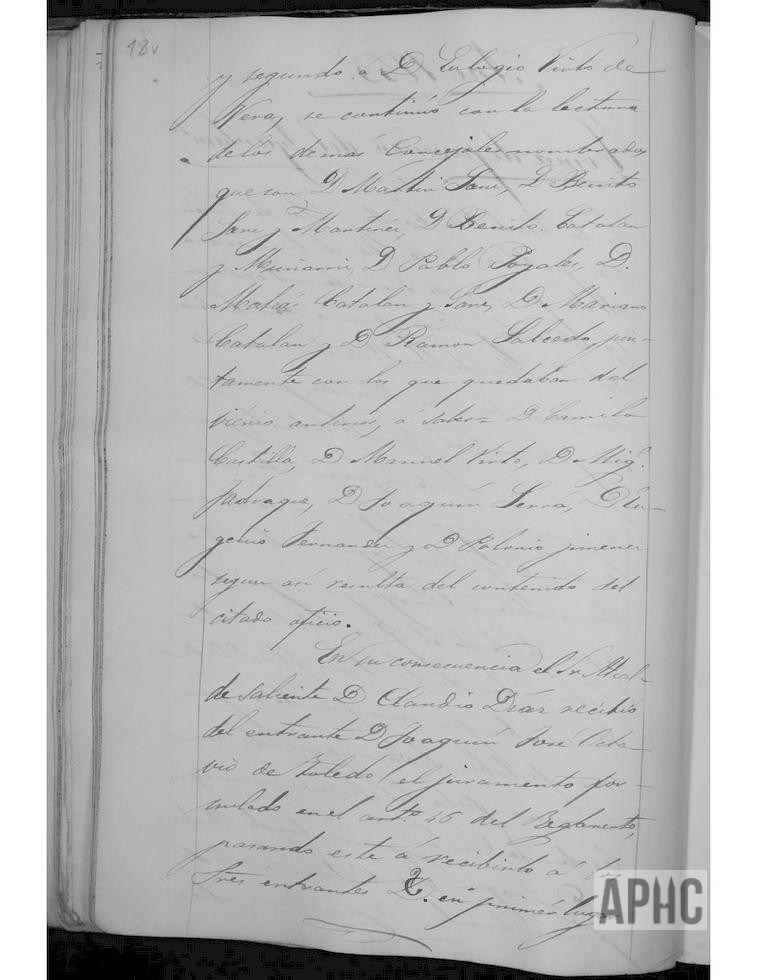 18v
y segundo a D Eulogio Pinto de
Vera, se continuó con la lectura
de los demas Concejales nombrados
que son D Martin Sanz, D Benito
Sanz y Martinez, D Benito Catalan
y D Pablo Poyales, D.
Matias Catalan y Sanz, D Mariano
Catalan y D Ramon Salcedo, jun-
tamente con los que quedaban del
vienio anterior, á saber= D Camilo
Castilla, D Manuel Pinto, D Mig.l
Jadraque, D Joaquin Serra, D Eu-
genio Fernandez y D Polonio jimenez
segun asi resulta del contenido del
citado oficio.
En su consecuencia el Sr. Alcal-
de saliente D Claudio Diaz recibió
del entrante D Joaquin José Octa-
vio de Toledo el juramento for-
mulado en el art.o 46 del Reglamento,
pasando este á recibirlo á los
Sres entrantes D. en primer lugar
APHC